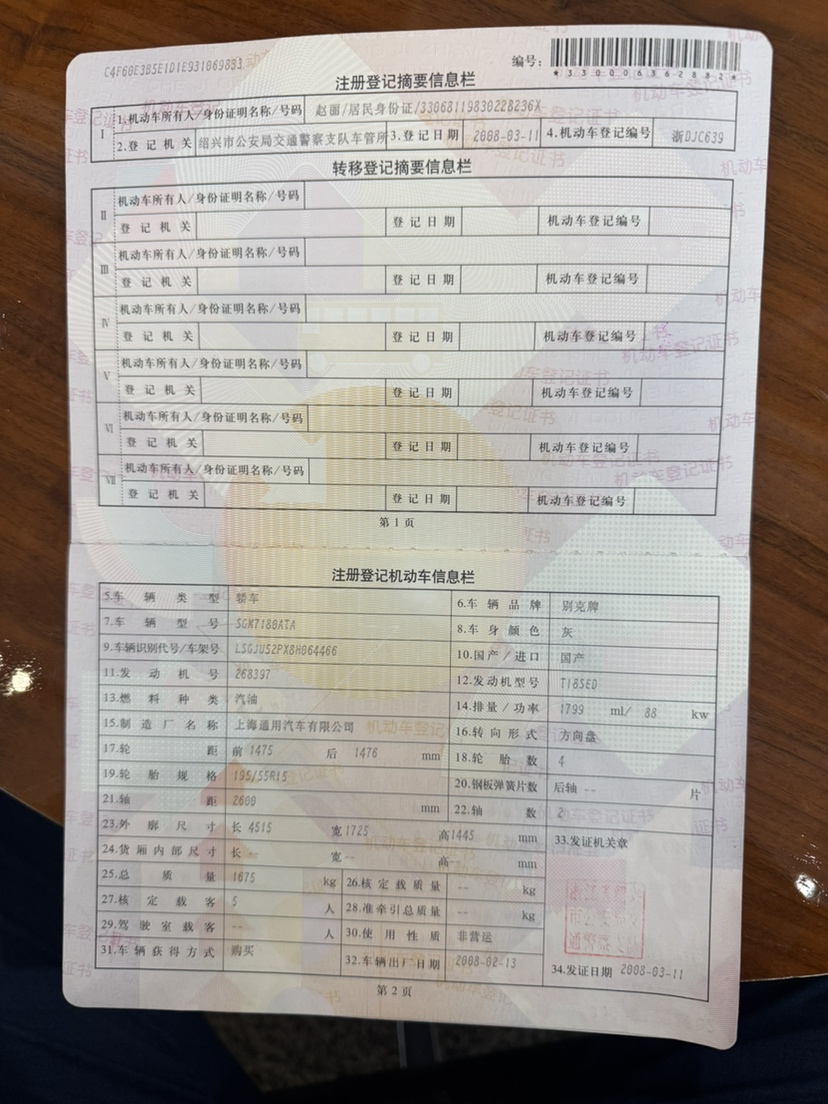 C4F60E3B5E1D1E931069833
编号:
*330006362882*
注册登记摘要信息栏
I 1.机动车所有人/身份证明名称/号码 赵丽/居民身份证/33068119830228236X
2.登记机关 绍兴市公安局交通警察支队车管所 3.登记日期 2008-03-11 4.机动车登记编号 浙DJC639
转移登记摘要信息栏
II 机动车所有人/身份证明名称/号码
登记机关 登记日期 机动车登记编号
III 机动车所有人/身份证明名称/号码
登记机关 登记日期 机动车登记编号
IV 机动车所有人/身份证明名称/号码
登记机关 登记日期 机动车登记编号
V 机动车所有人/身份证明名称/号码
登记机关 登记日期 机动车登记编号
VI 机动车所有人/身份证明名称/号码
登记机关 登记日期 机动车登记编号
VII 机动车所有人/身份证明名称/号码
登记机关 登记日期 机动车登记编号
第1页
注册登记机动车信息栏
5.车辆类型 轿车 6.车辆品牌 别克牌
7.车辆型号 SGM7180ATA 8.车身颜色 灰
9.车辆识别代号/车架号 LSGJU52PX8H064466 10.国产/进口 国产
11.发动机号 268397 12.发动机型号 T18SED
13.燃料种类 汽油 14.排量/功率 1799 ml/ 88 kw
15.制造厂名称 上海通用汽车有限公司 16.转向形式 方向盘
17.轮距 前 1475 后 1476 mm 18.轮胎数 4
19.轮胎规格 195/55R15 20.钢板弹簧片数 后轴 -- 片
21.轴距 2600 mm 22.轴数 2
23.外廓尺寸 长 4515 宽 1725 高 1445 mm 33.发证机关章
24.货厢内部尺寸 长 -- 宽 -- 高 -- mm
25.总质量 1675 kg 26.核定载质量 -- kg
27.核定载客 5 人 28.准牵引总质量 -- kg
29.驾驶室载客 -- 人 30.使用性质 非营运
31.车辆获得方式 购买 32.车辆出厂日期 2008-02-13 34.发证日期 2008-03-11
第2页